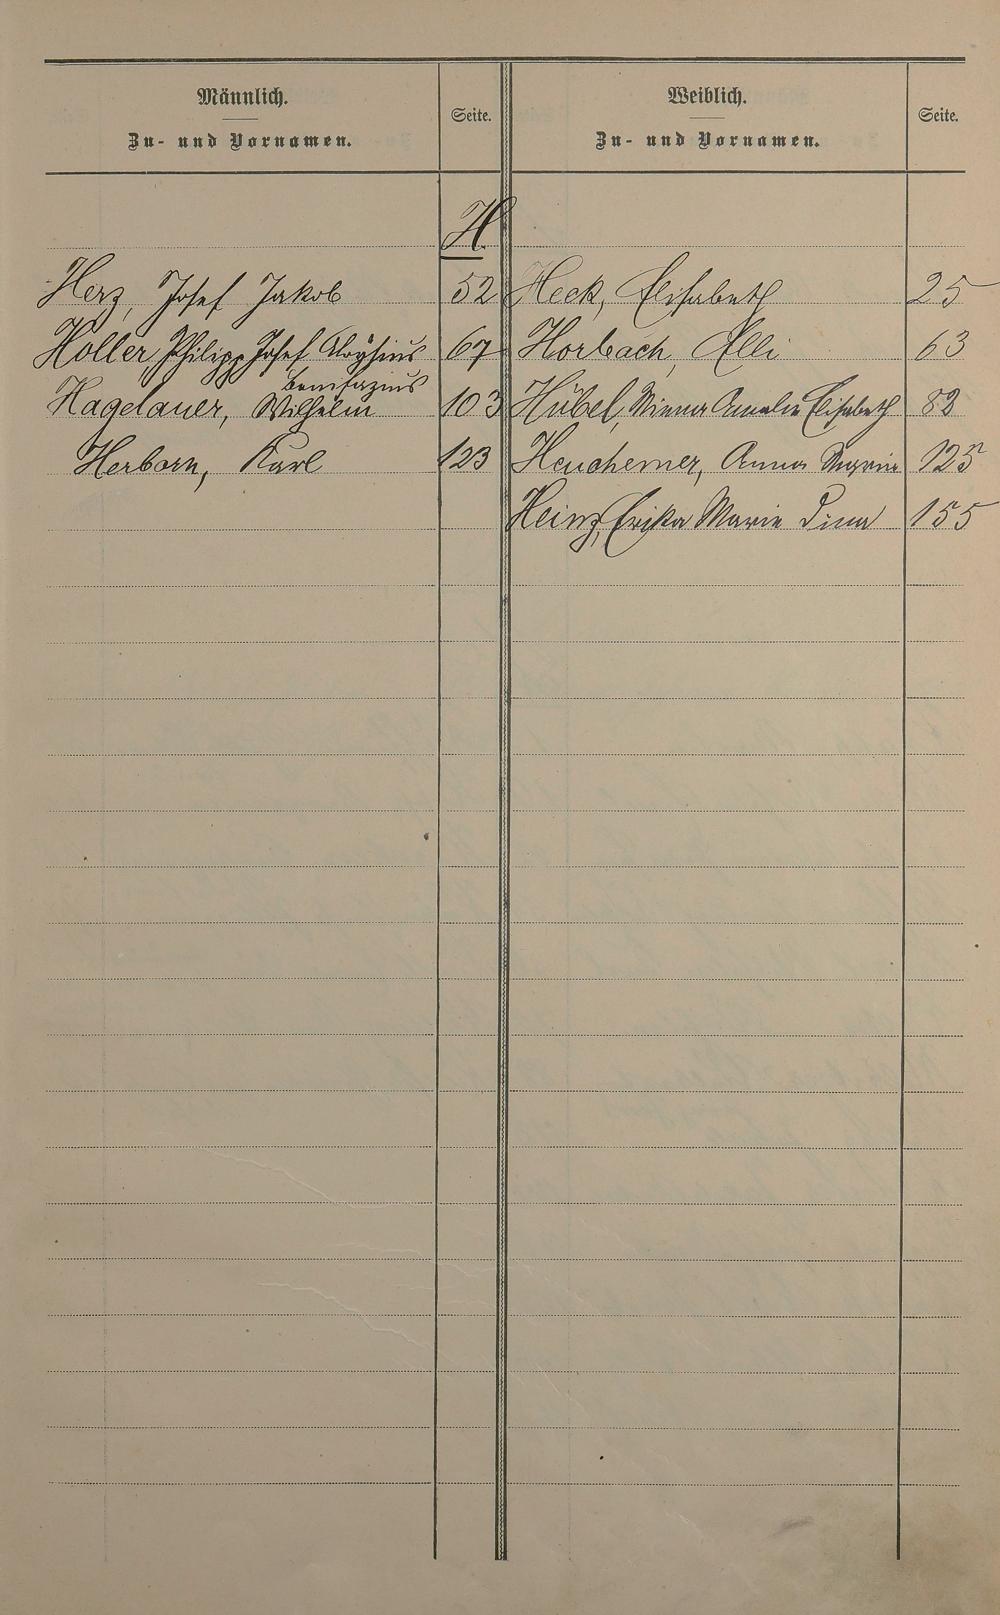 Männlich.
Zu- und Vornamen.
Seite.
Weiblich.
Zu- und Vornamen.
Seite.
H.
Herz, Josef Jakob 52
Heck, Elisabeth 25
Holler, Philipp Josef Aloysius 67
Horbach, Elli 63
Bonifazius
Hagelauer, Wilhelm 103
Hübel, Minna Amalie Elisabeth 82
Herborn, Karl 123
Heuchemer, Anna Maria 125
Heinz, Erika Marie Dina 155